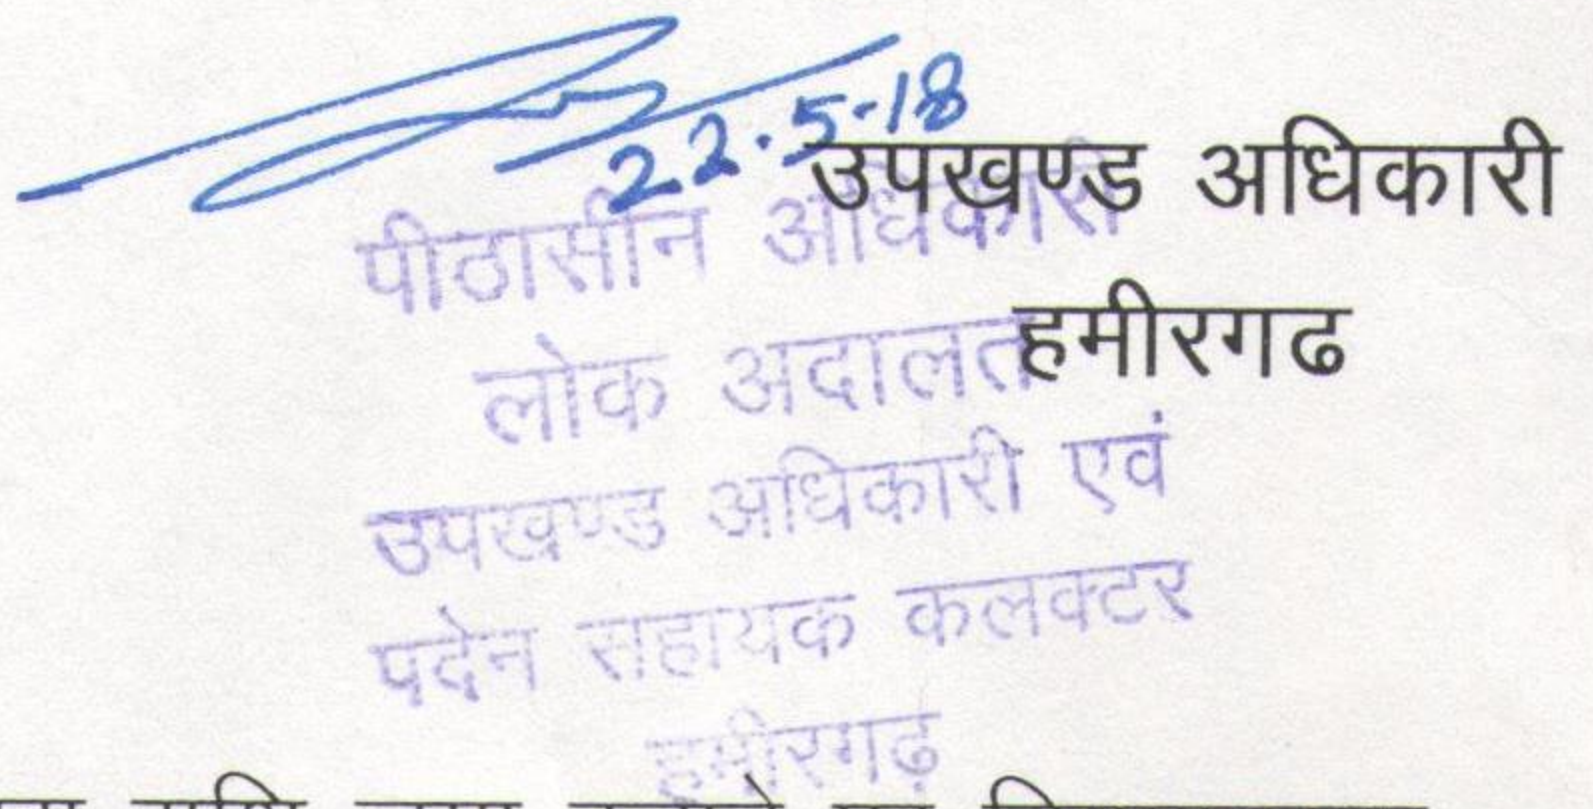 22.5-18
उपखण्ड अधिकारी
पीठासीन अधिकारी
हमीरगढ
लोक अदालत
उपखण्ड अधिकारी एवं
पदेन सहायक कलक्टर
हमीरगढ़